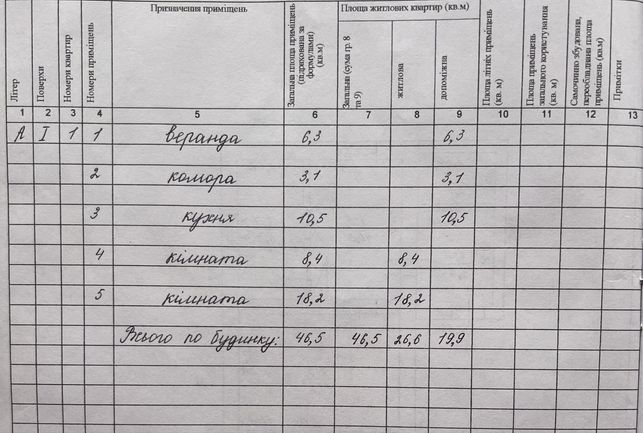 Літер
Поверхи
Номери квартир
Номери приміщень
Призначення приміщень
Загальна площа приміщень (підрахована за формулами) (кв.м)
Площа житлових квартир (кв.м)
Загальна (сума гр. 8 та 9)
житлова
допоміжна
Площа літніх приміщень (кв. м)
Площа приміщень загального користування (кв. м)
Самочинно збудована, переобладнана площа приміщень (кв.м)
Примітки
1 2 3 4 5 6 7 8 9 10 11 12 13
А I 1 1 веранда 6,3 6,3
2 комора 3,1 3,1
3 кухня 10,5 10,5
4 кімната 8,4 8,4
5 кімната 18,2 18,2
Всього по будинку: 46,5 46,5 26,6 19,9